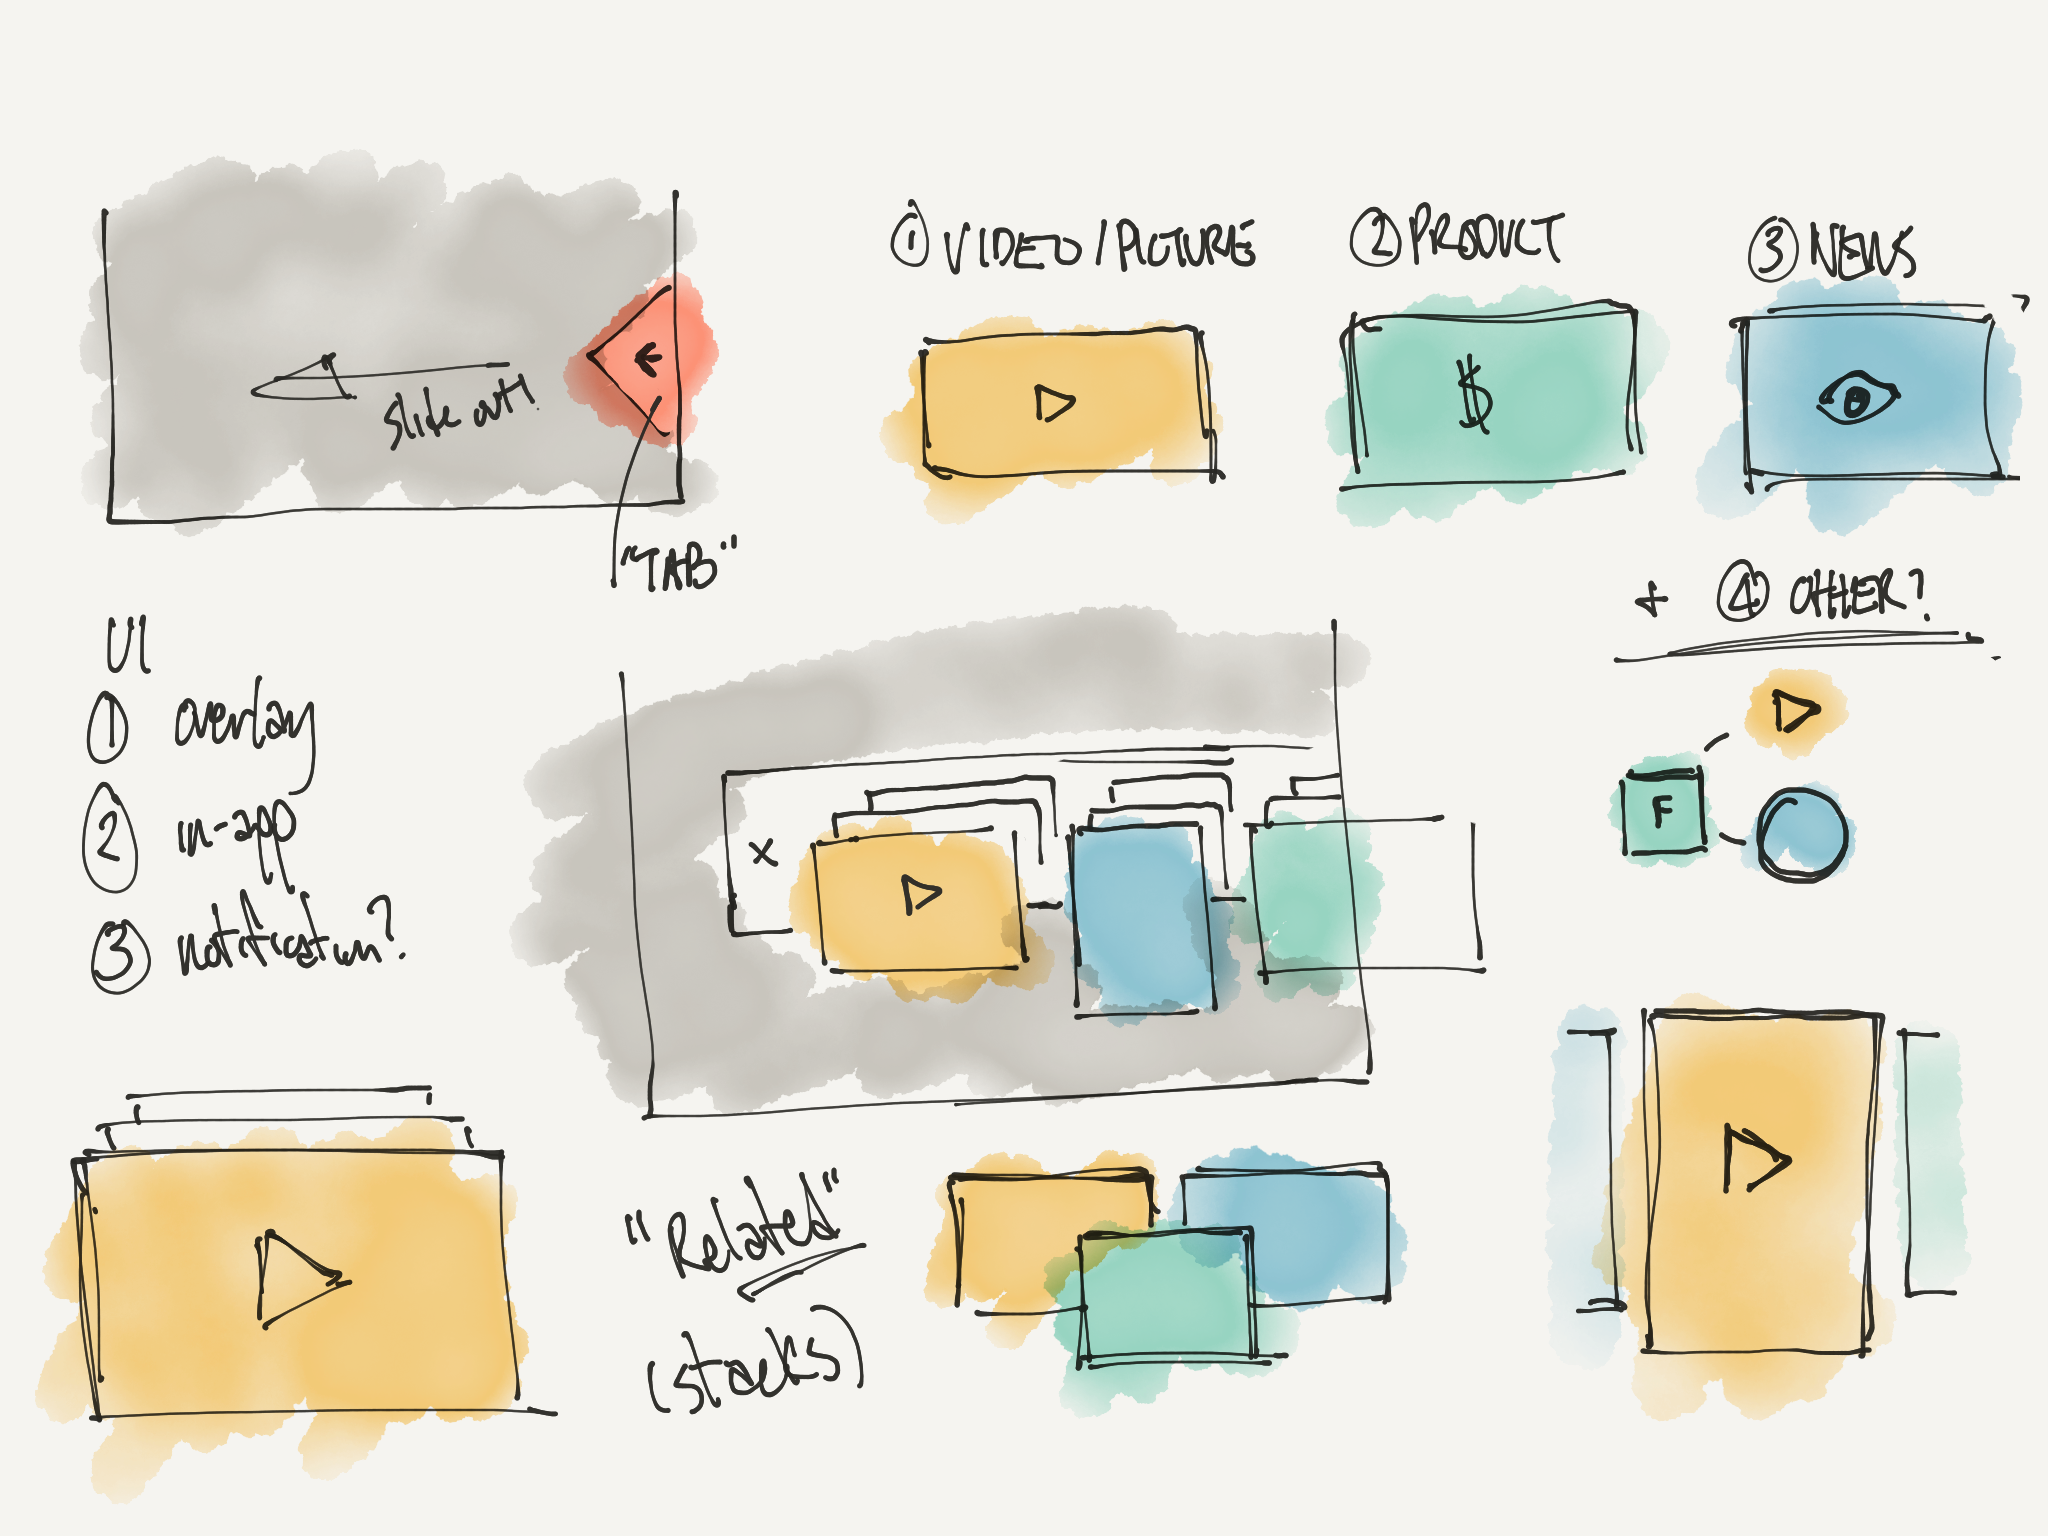 slide out!
"TAB"
① VIDEO/PICTURE
② PRODUCT
③ NEWS
$
+ ④ OTHER?
UI
① overlay
② in-app
③ notification?
x
F
"Related"
(stacks)